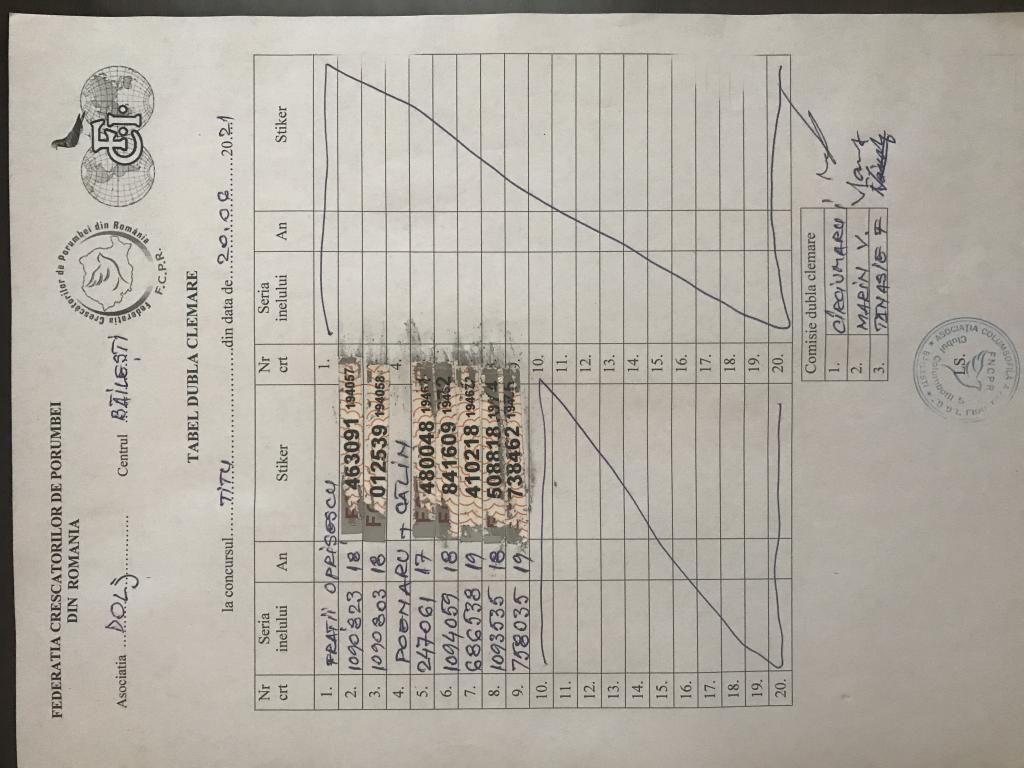 FEDERATIA CRESCATORILOR DE PORUMBEI
DIN ROMANIA
Federatia Crescătorilor de Porumbei din România
F.C.P.R.
FCI
Asociatia ...DOLJ............ Centrul BĂILEȘTI
TABEL DUBLA CLEMARE
la concursul......TITU..............................din data de....20.06.......2021
Nr crt Seria inelului An Stiker Nr crt Seria inelului An Stiker
1. FRAȚII OPRIȘESCU 1.
2. 1090823 18 463091 194057
3. 1090803 18 012539 194058
4. POENARU + CĂLIN 4.
5. 247061 17 480048
6. 1094059 18 841609
7. 686538 19 410218
8. 1093535 18 508818
9. 758035 19 738462
10. 10.
11. 11.
12. 12.
13. 13.
14. 14.
15. 15.
16. 16.
17. 17.
18. 18.
19. 19.
20. 20.
Comisie dubla clemare
1. CROIUMARU
2. MARIN V.
3. TANASIE F
L.S.